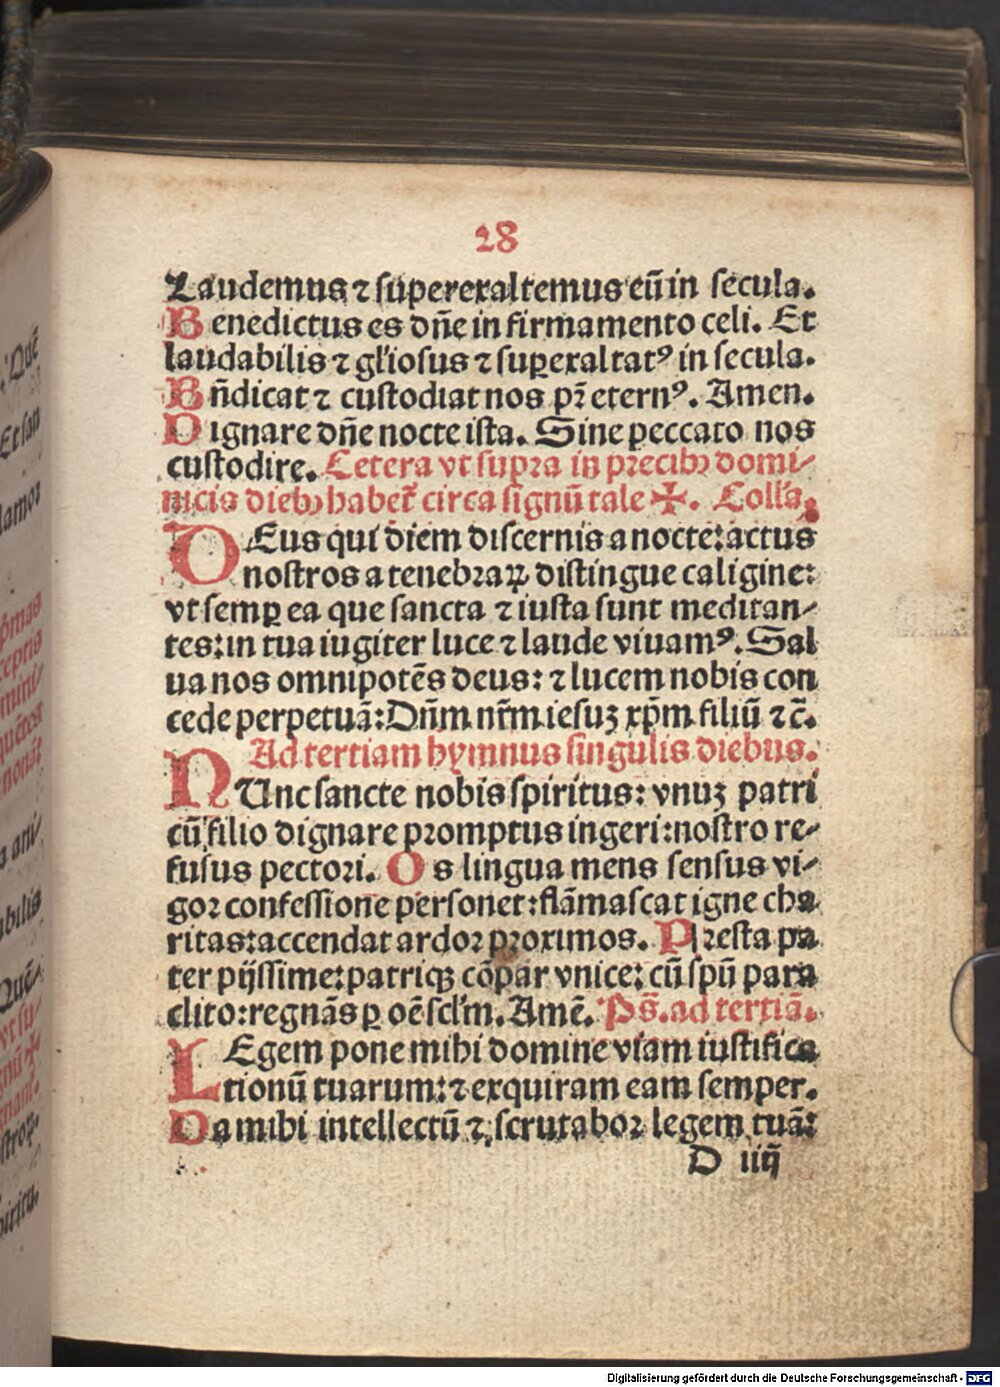 28
Laudemus ⁊ superexaltemus eū in secula.
Benedictus es dn̄e in firmamento celi. Et
laudabilis ⁊ gl'iosus ⁊ suꝑexaltatꝰ in secula.
Bn̄dicat ⁊ custodiat nos pr̄ eternꝰ. Amen.
Dignare dn̄e nocte ista. Sine peccato nos
custodire. Cetera vt supra in precibꝫ domi⸗
nicis diebꝫ habet᷑ circa signū tale ✠. Coll'a.
DEus qui diem discernis a nocte: actus
nostros a tenebraꝝ distingue caligine:
vt semꝑ ea que sancta ⁊ iusta sunt meditan⸗
tes: in tua iugiter luce ⁊ laude viuamꝰ. Sal
ua nos omnipotēs deus: ⁊ lucem nobis con
cede perpetuā: Dn̄m nr̄m iesuꝫ xp̄m filiū ⁊c̄.
Ad tertiam hymnus singulis diebus.
NUnc sancte nobis spiritus: vnuꝫ patri
cū filio dignare promptus ingeri: nostro re⸗
fusus pectori. Os lingua mens sensus vi⸗
gor confessione personet: flāmascat igne cha
ritas: accendat ardor proximos. Presta pa
ter pijssime: patriqꝫ cōpar vnice: cū spū para
clito: regnās ꝑ oē scl'm. Amē. Ps̄. ad tertiā.
LEgem pone mihi domine viam iustifica
tionū tuarum: ⁊ exquiram eam semper.
Da mihi intellectū ⁊ scrutabor legem tuā:
D iiij
Quē
Et san
lamor
mini⸗
ani⸗
abilis
Quē⸗
Digitalisierung gefördert durch die Deutsche Forschungsgemeinschaft - DFG